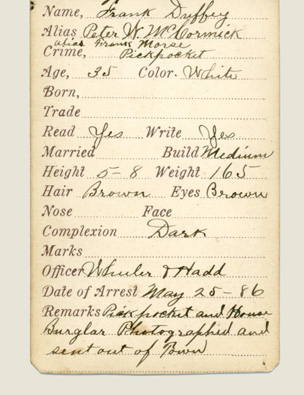 Name, Frank Duffey
Alias Peter W. McCormick
alias Frank Morse
Crime, Pickpocket
Age, 35 Color. White
Born,
Trade
Read Yes Write Yes
Married Build Medium
Height 5-8 Weight 165
Hair Brown Eyes Brown
Nose Face
Complexion Dark
Marks
Officer Wheeler & Hadd
Date of Arrest May 25-86
Remarks Pick pocket and House
Burglar. Photographed and
sent out of Town